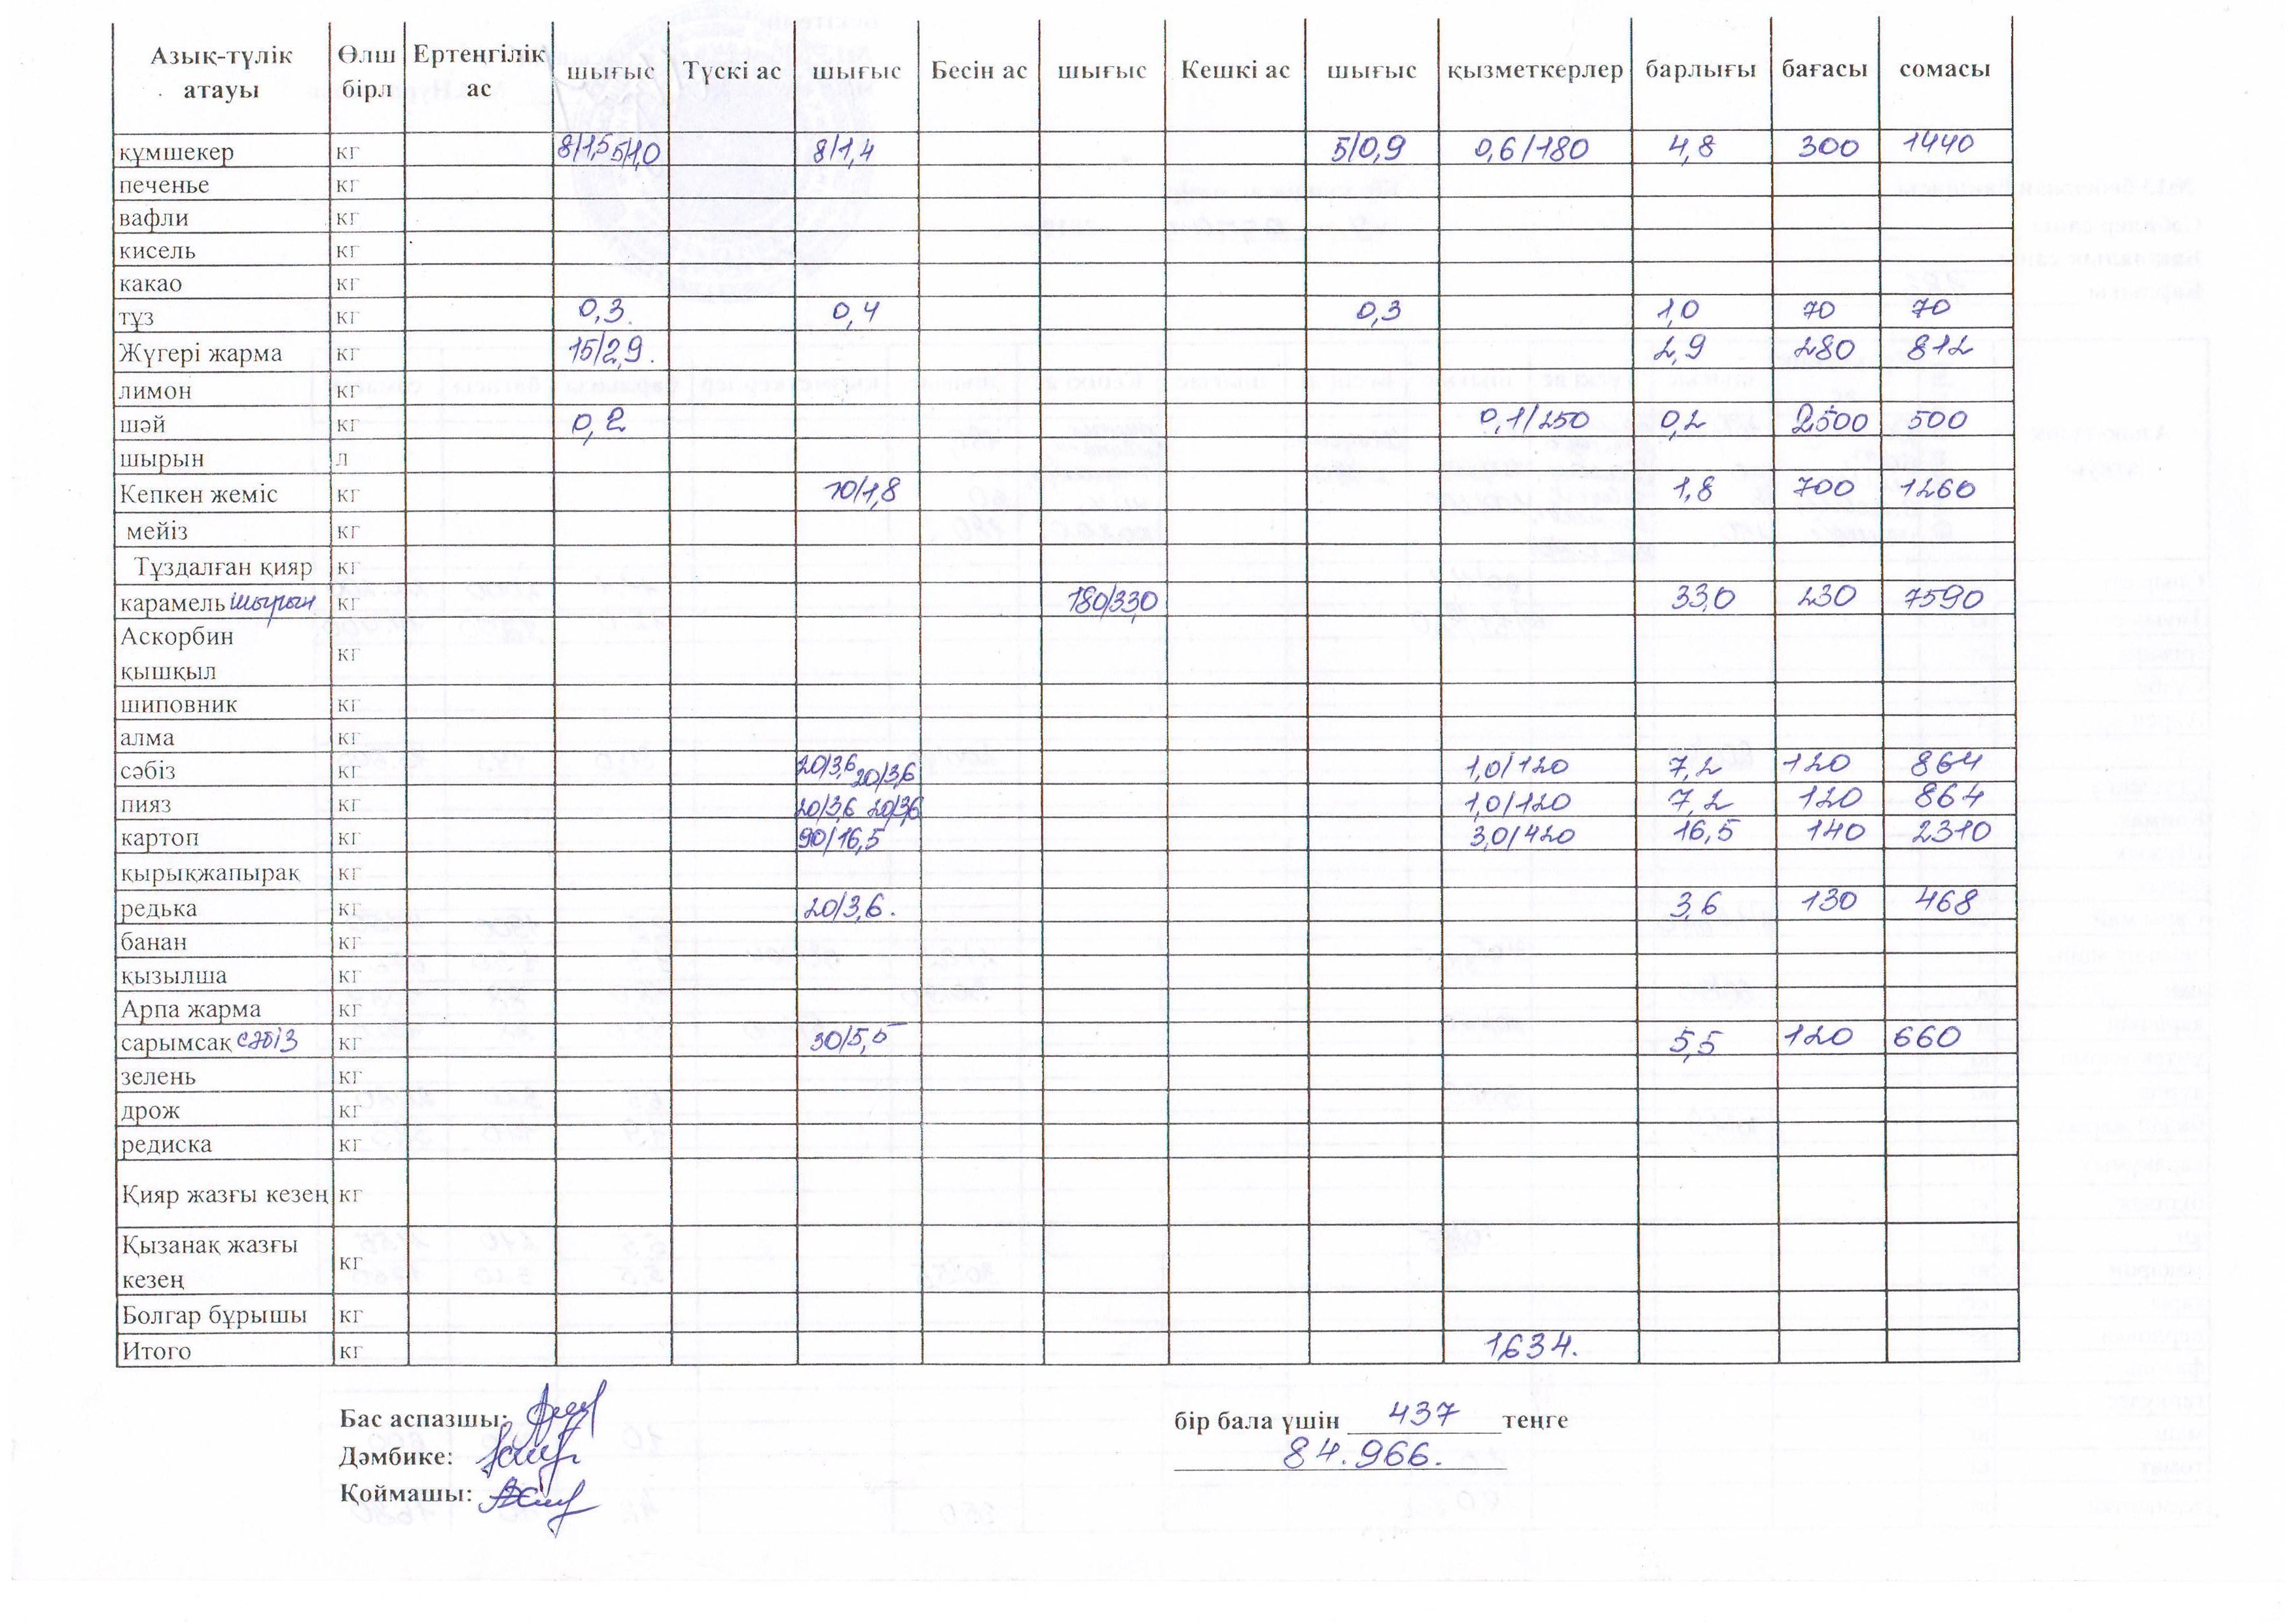 Азық-түлік атауы Өлш бірл Ертеңгілік ас шығыс Түскі ас шығыс Бесін ас шығыс Кешкі ас шығыс қызметкерлер барлығы бағасы сомасы
құмшекер кг 8/1,5 5/1,0 8/1,4 5/0,9 0,6/180 4,8 300 1440
печенье кг
вафли кг
кисель кг
какао кг
тұз кг 0,3. 0,4 0,3 1,0 70 70
Жүгері жарма кг 15/2,9. 2,9 280 812
лимон кг
шәй кг 0,2 0,1/250 0,2 2500 500
шырын л
Кепкен жеміс кг 10/1,8 1,8 700 1260
мейіз кг
Тұздалған қияр кг
карамель шырын кг 180/33,0 33,0 230 7590
Аскорбин қышқыл кг
шиповник кг
алма кг
сәбіз кг 20/3,6 20/3,6 1,0/120 7,2 120 864
пияз кг 20/3,6 20/3,6 1,0/120 7,2 120 864
картоп кг 90/16,5 3,0/420 16,5 140 2310
қырықжапырақ кг
редька кг 20/3,6. 3,6 130 468
банан кг
қызылша кг
Арпа жарма кг
сарымсақ сәбіз кг 30/5,5 5,5 120 660
зелень кг
дрож кг
редиска кг
Қияр жазғы кезең кг
Қызанақ жазғы кезең кг
Болгар бұрышы кг
Итого кг 1634.
Бас аспазшы: бір бала үшін 437 теңге
Дәмбике: 84.966.
Қоймашы: